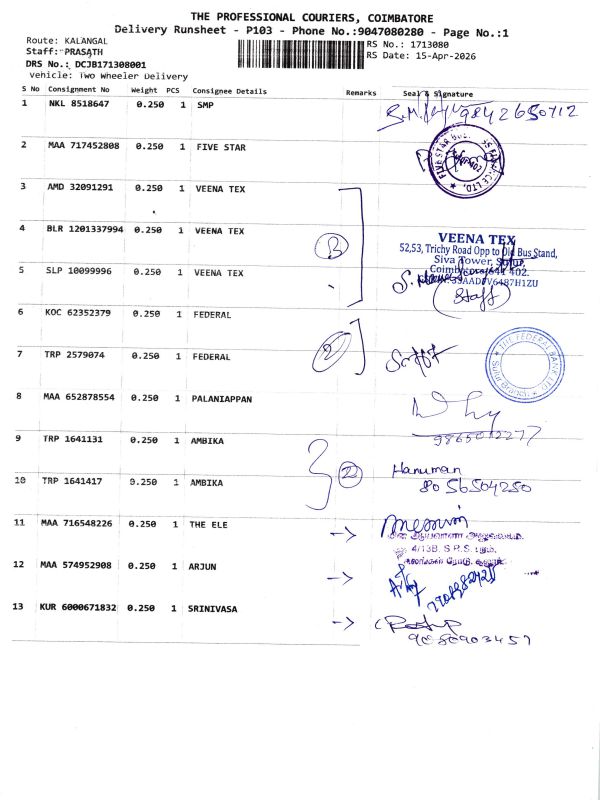 THE PROFESSIONAL COURIERS, COIMBATORE
Delivery Runsheet - P103 - Phone No.:9047080280 - Page No.:1
Route: KALANGAL
RS No.: 1713080
Staff: PRASATH
RS Date: 15-Apr-2026
DRS No.: DCJB171308001
Vehicle: Two Wheeler Delivery
S No Consignment No Weight PCS Consignee Details Remarks Seal & Signature
1 NKL 8518647 0.250 1 SMP
9842650712
2 MAA 717452808 0.250 1 FIVE STAR
FIVE STAR BUS.
3 AMD 32091291 0.250 1 VEENA TEX
4 BLR 1201337994 0.250 1 VEENA TEX
3
VEENA TEX
52,53, Trichy Road Opp to Old Bus Stand,
Siva Tower, Sulur,
5 SLP 10099996 0.250 1 VEENA TEX
(Staff)
6 KOC 62352379 0.250 1 FEDERAL
7 TRP 2579074 0.250 1 FEDERAL
2
THE FEDERAL BANK LTD
8 MAA 652878554 0.250 1 PALANIAPPAN
9865012277
9 TRP 1641131 0.250 1 AMBIKA
Hanuman
10 TRP 1641417 0.250 1 AMBIKA
2
8056504250
11 MAA 716548226 0.250 1 THE ELE
4/13B, S.P.S.
12 MAA 574952908 0.250 1 ARJUN
13 KUR 6000671832 0.250 1 SRINIVASA